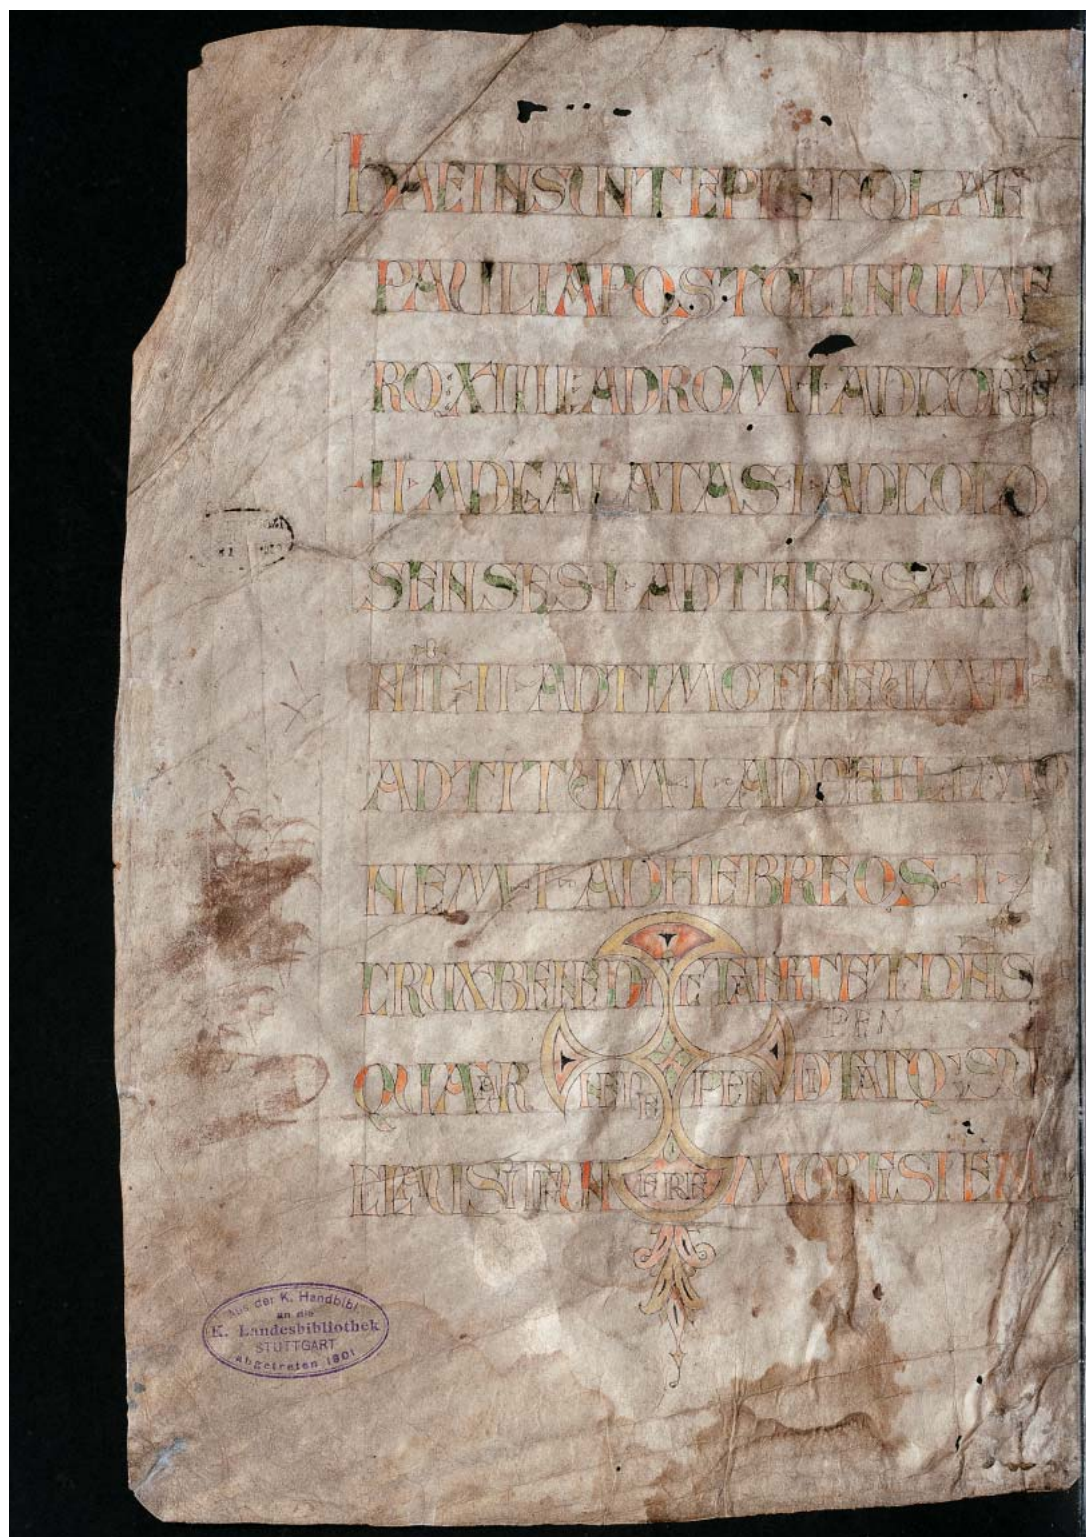 HAEINSUNTEPISTOLAE
PAULIAPOSTOLINUME
RO:XIIII:ADROM̄·I·AD
·II·ADGALATAS·I·ADCOLO
SENSES·I·ADTHESSALO
NIC̄·II·ADTIMOTHEUM·II·
ADTITUM·I·ADPHILIMO
NEM·I·ADHEBREOS·I·
CRUXBENEDICTANITETDN̄S
PEN
QUACAR NE PEN DITATQ·
CLAUSITFUN ERE MORTIS
Aus der K. Handbibl.
an die
K. Landesbibliothek
STUTTGART
abgetreten 1901